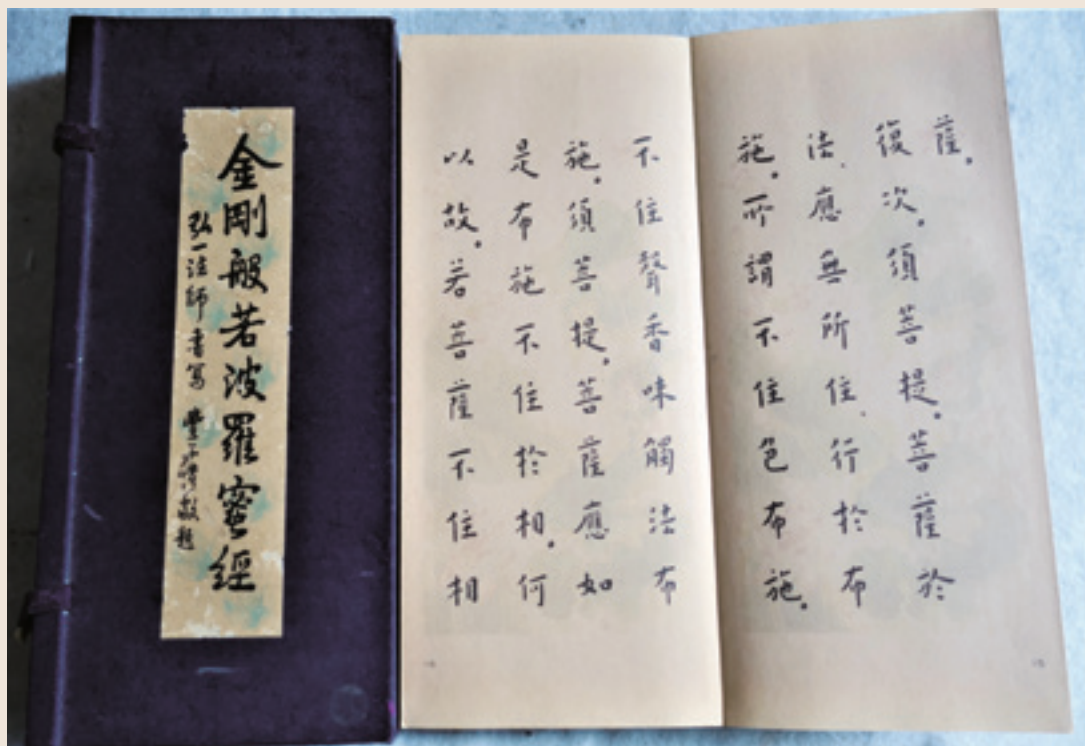 金剛般若波羅蜜經
弘一法師書寫 豐子愷敬題
薩。
復次。須菩提。菩薩於
法、應無所住、行於布
施。所謂不住色布施。
不住聲香味觸法布
施。須菩提。菩薩應如
是布施不住於相。何
以故。若菩薩不住相